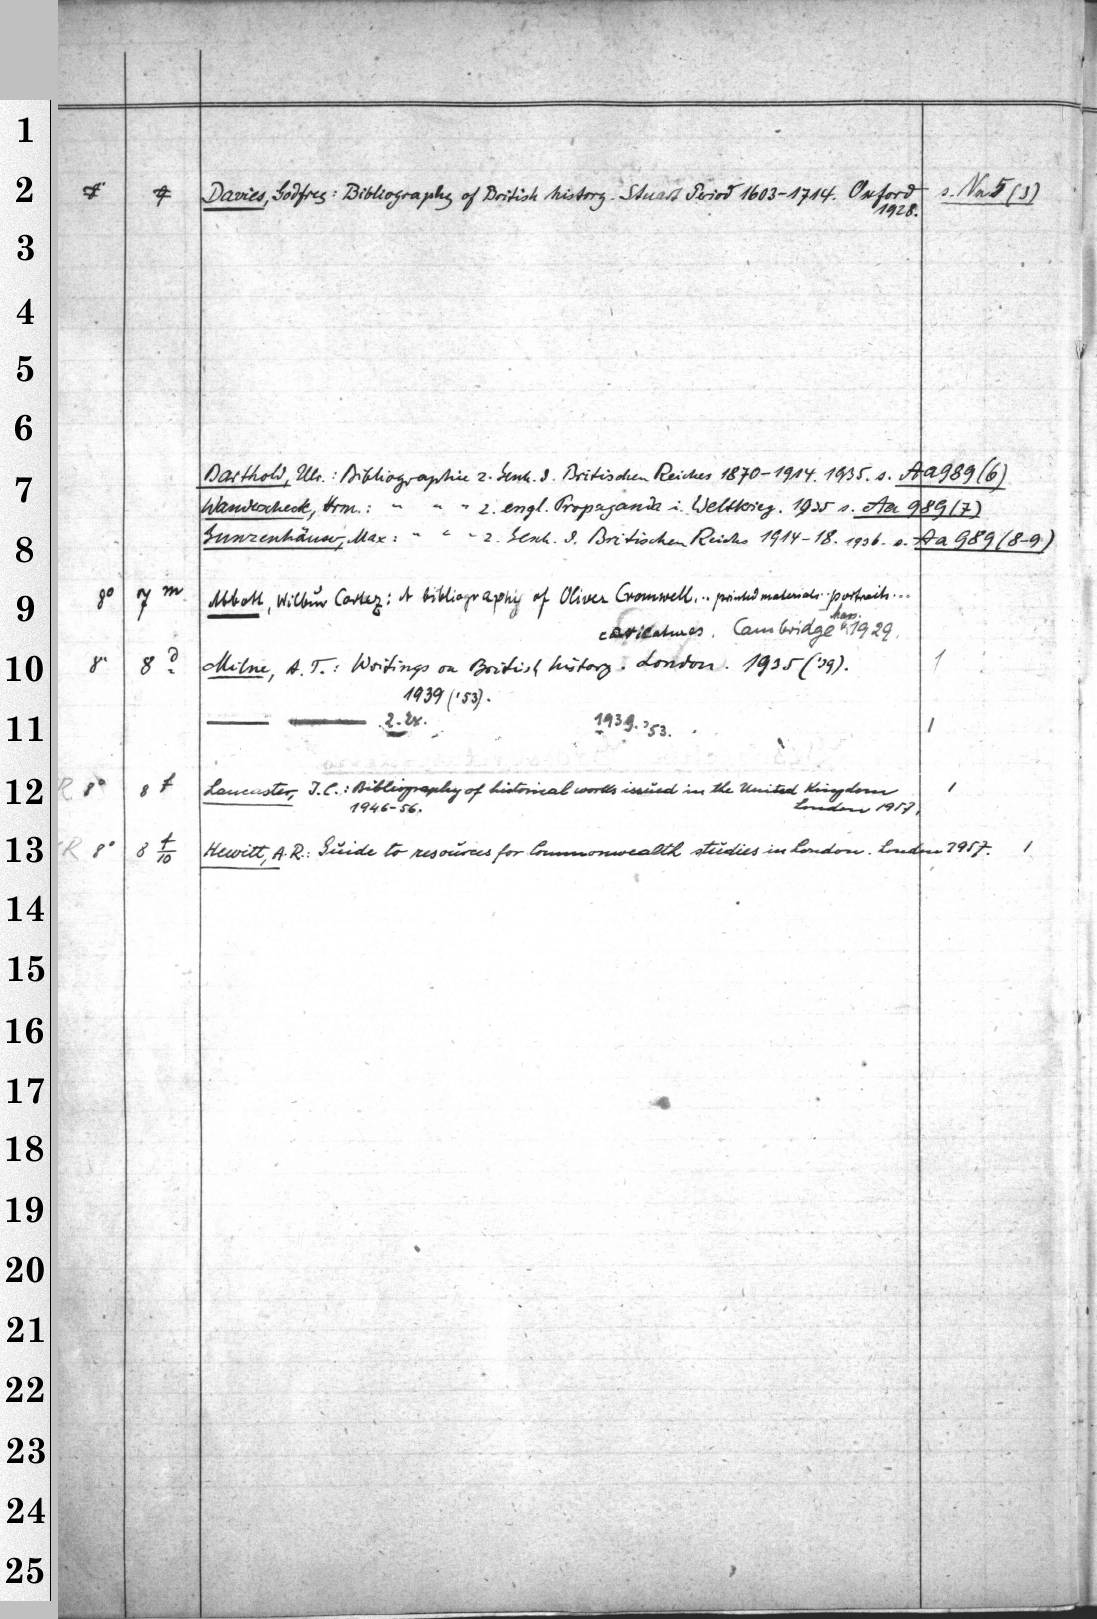 1
2 Davies, Godfrey: Bibliography of British history. Stuart Period 1603-1714. Oxford s. Na 5 (3)
1928.
3
4
5
6
Barthold, Ulr.: Bibliographie z. Gesch. d. Britischen Reiches 1870-1914. 1935. s. Aa 989 (6)
7
Wanderscheck, Hrm.: " " " z. engl. Propaganda i. Weltkrieg. 1935 s. Aa 989 (7)
8 Gunzenhäuser, Max: " " " z. Gesch. d. Britischen Reichs 1914-18. 1936. s. Aa 989 (8-9)
9 8° 7 m Abbott, Wilbur Cortez: A bibliography of Oliver Cromwell... printed materials.. portraits...
caricatures. Cambridge Mass. 1929.
10 8° 8 d Milne, A. T.: Writings on British history. London. 1935 ('39). 1
1939 ('53).
11 2. Ex. 1939. '53. 1
12 R 8° 8 f Lancaster, J.C.: Bibliography of historical works issued in the United Kingdom 1
1946-56. London 1957.
13 R 8° 8 f/10 Hewitt, A.R.: Guide to resources for Commonwealth studies in London. London 1957. 1
14
15
16
17
18
19
20
21
22
23
24
25